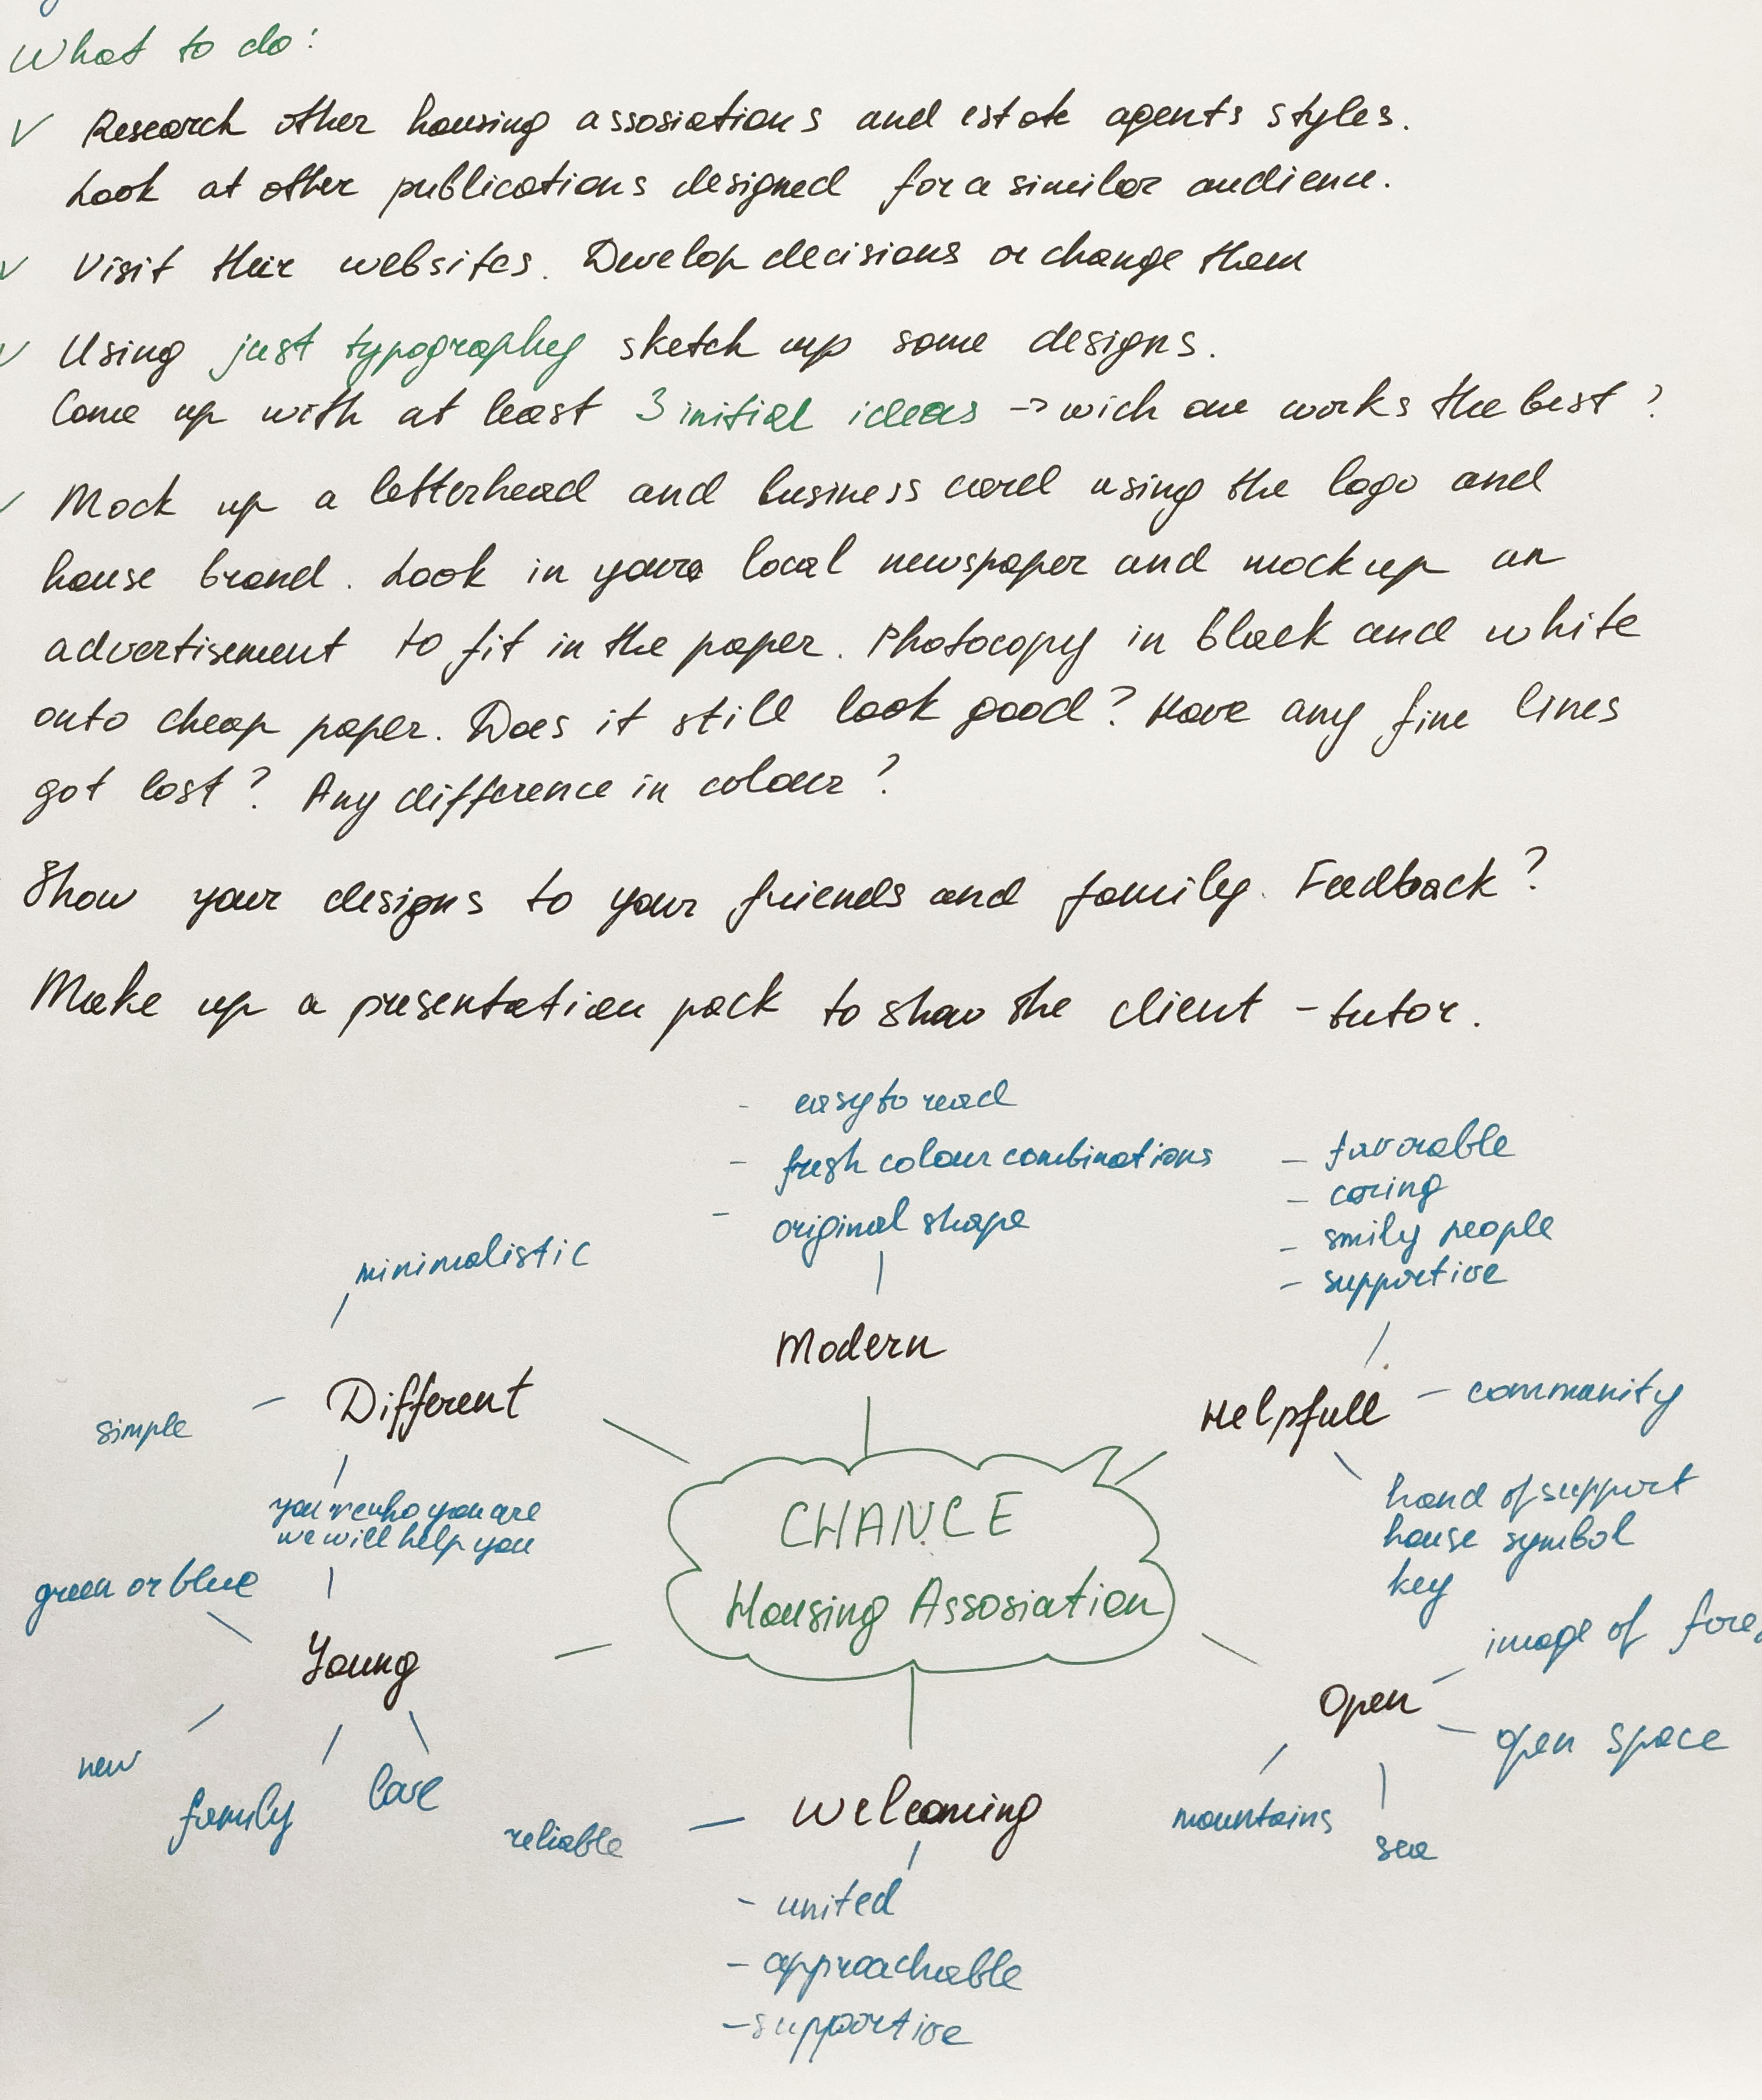 What to do:
V Research other housing assosiations and estate agents styles.
Look at other publications designed for a similar audience.
V Visit their websites. Develop decisions or change them
V Using just typography sketch up some designs.
Come up with at least 3 initial ideas -> wich one works the best?
V Mock up a letterhead and business card using the logo and
house brand. Look in your local newspaper and mock up an
advertisement to fit in the paper. Photocopy in black and white
onto cheap paper. Does it still look good? Have any fine lines
got lost? Any difference in colour?
Show your designs to your friends and family. Feedback?
Make up a presentation pack to show the client - tutor.
- easy to read
- fresh colour combinations
- original shape
- favorable
- caring
- smily people
- supportive
minimalistic
Modern
Different
simple
Helpfull
- community
you're who you are
we will help you
CHANCE
Housing Assosiation
hand of support
house symbol
key
green or blue
Young
image of
Open
open space
new
family
love
reliable
Welcoming
mountains
sea
- united
- approachable
- supportive